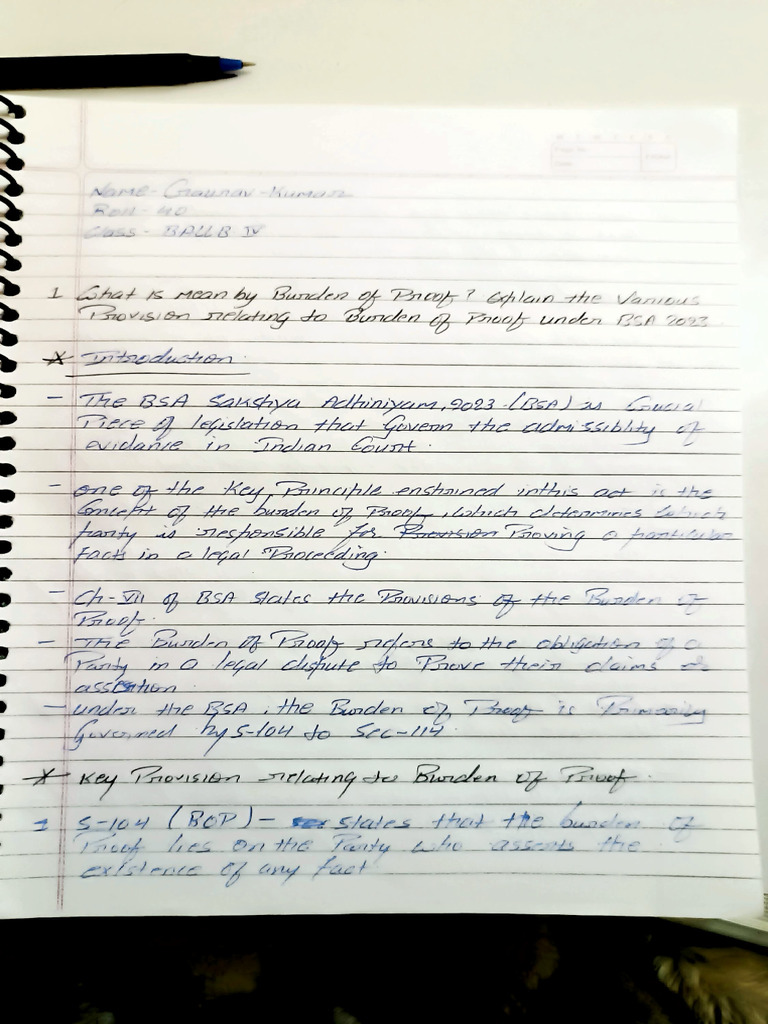 Name - Gaurav - Kumar
Roll - 40
Class - BALLB IV
1 What is mean by Burden of Proof? Explain the Various
Provision relating to Burden of Proof under BSA 2023
* Introduction
- The BSA Sakshya Adhiniyam, 2023 (BSA) is Crucial
Piece of legislation that Govern the admissiblity of
evidance in Indian Court.
- one of the Key Principle enshrined inthis act is the
Concept of the burden of Proof, which determines which
Party is responsible for Provision Proving a particular
facts in a legal Proceeding.
- Ch-VII of BSA states the Provisions of the Burden of
Proof.
- The Burden of Proof refers to the obligation of a
Party in a legal dispute to Prove their claims
assertion.
- under the BSA, the Burden of Proof is Primarily
Governed by S-104 to Sec-114.
* Key Provision relating to Burden of Proof.
1 S-104 (BOP) - states that the burden of
Proof lies on the Party who asserts the
existence of any fact